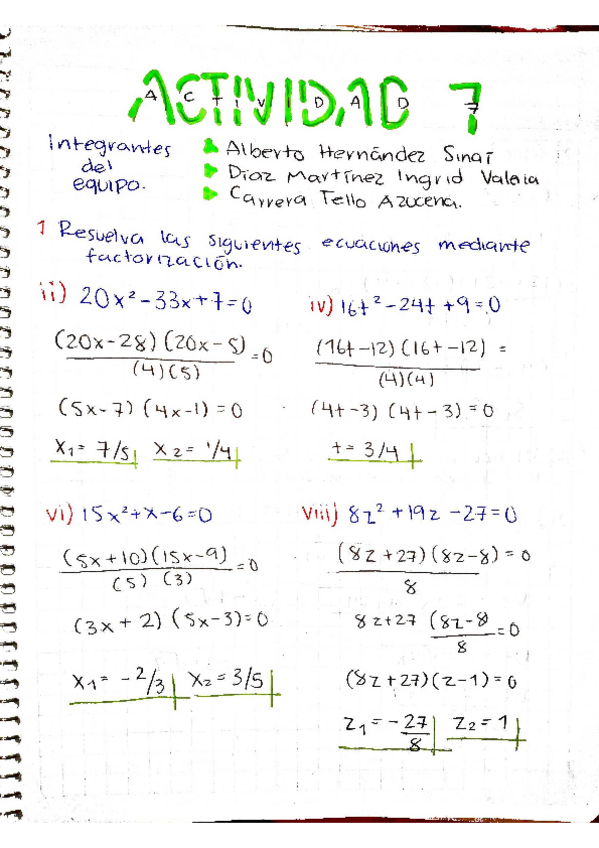 ACTIVIDAD 7
Integrantes del equipo.
Alberto Hernández Sinaí
Díaz Martínez Ingrid Valeria
Carrera Tello Azucena.
1 Resuelva las siguientes ecuaciones mediante
factorización.
ii) 20x²-33x+7=0
(20x-28)(20x-5)
/(4)(5) =0
(5x-7)(4x-1)=0
x₁= 7/5 x₂= 1/4
iv) 16t²-24t+9=0
(16t-12)(16t-12) =
/(4)(4)
(4t-3)(4t-3)=0
t= 3/4
vi) 15x²+x-6=0
(5x+10)(15x-9)
/(5)(3) =0
(3x+2)(5x-3)=0
x₁= -2/3 x₂= 3/5
viii) 8z²+19z-27=0
(8z+27)(8z-8)=0
/8
8z+27 (8z-8)/8 =0
(8z+27)(z-1)=0
z₁= -27/8 z₂= 1